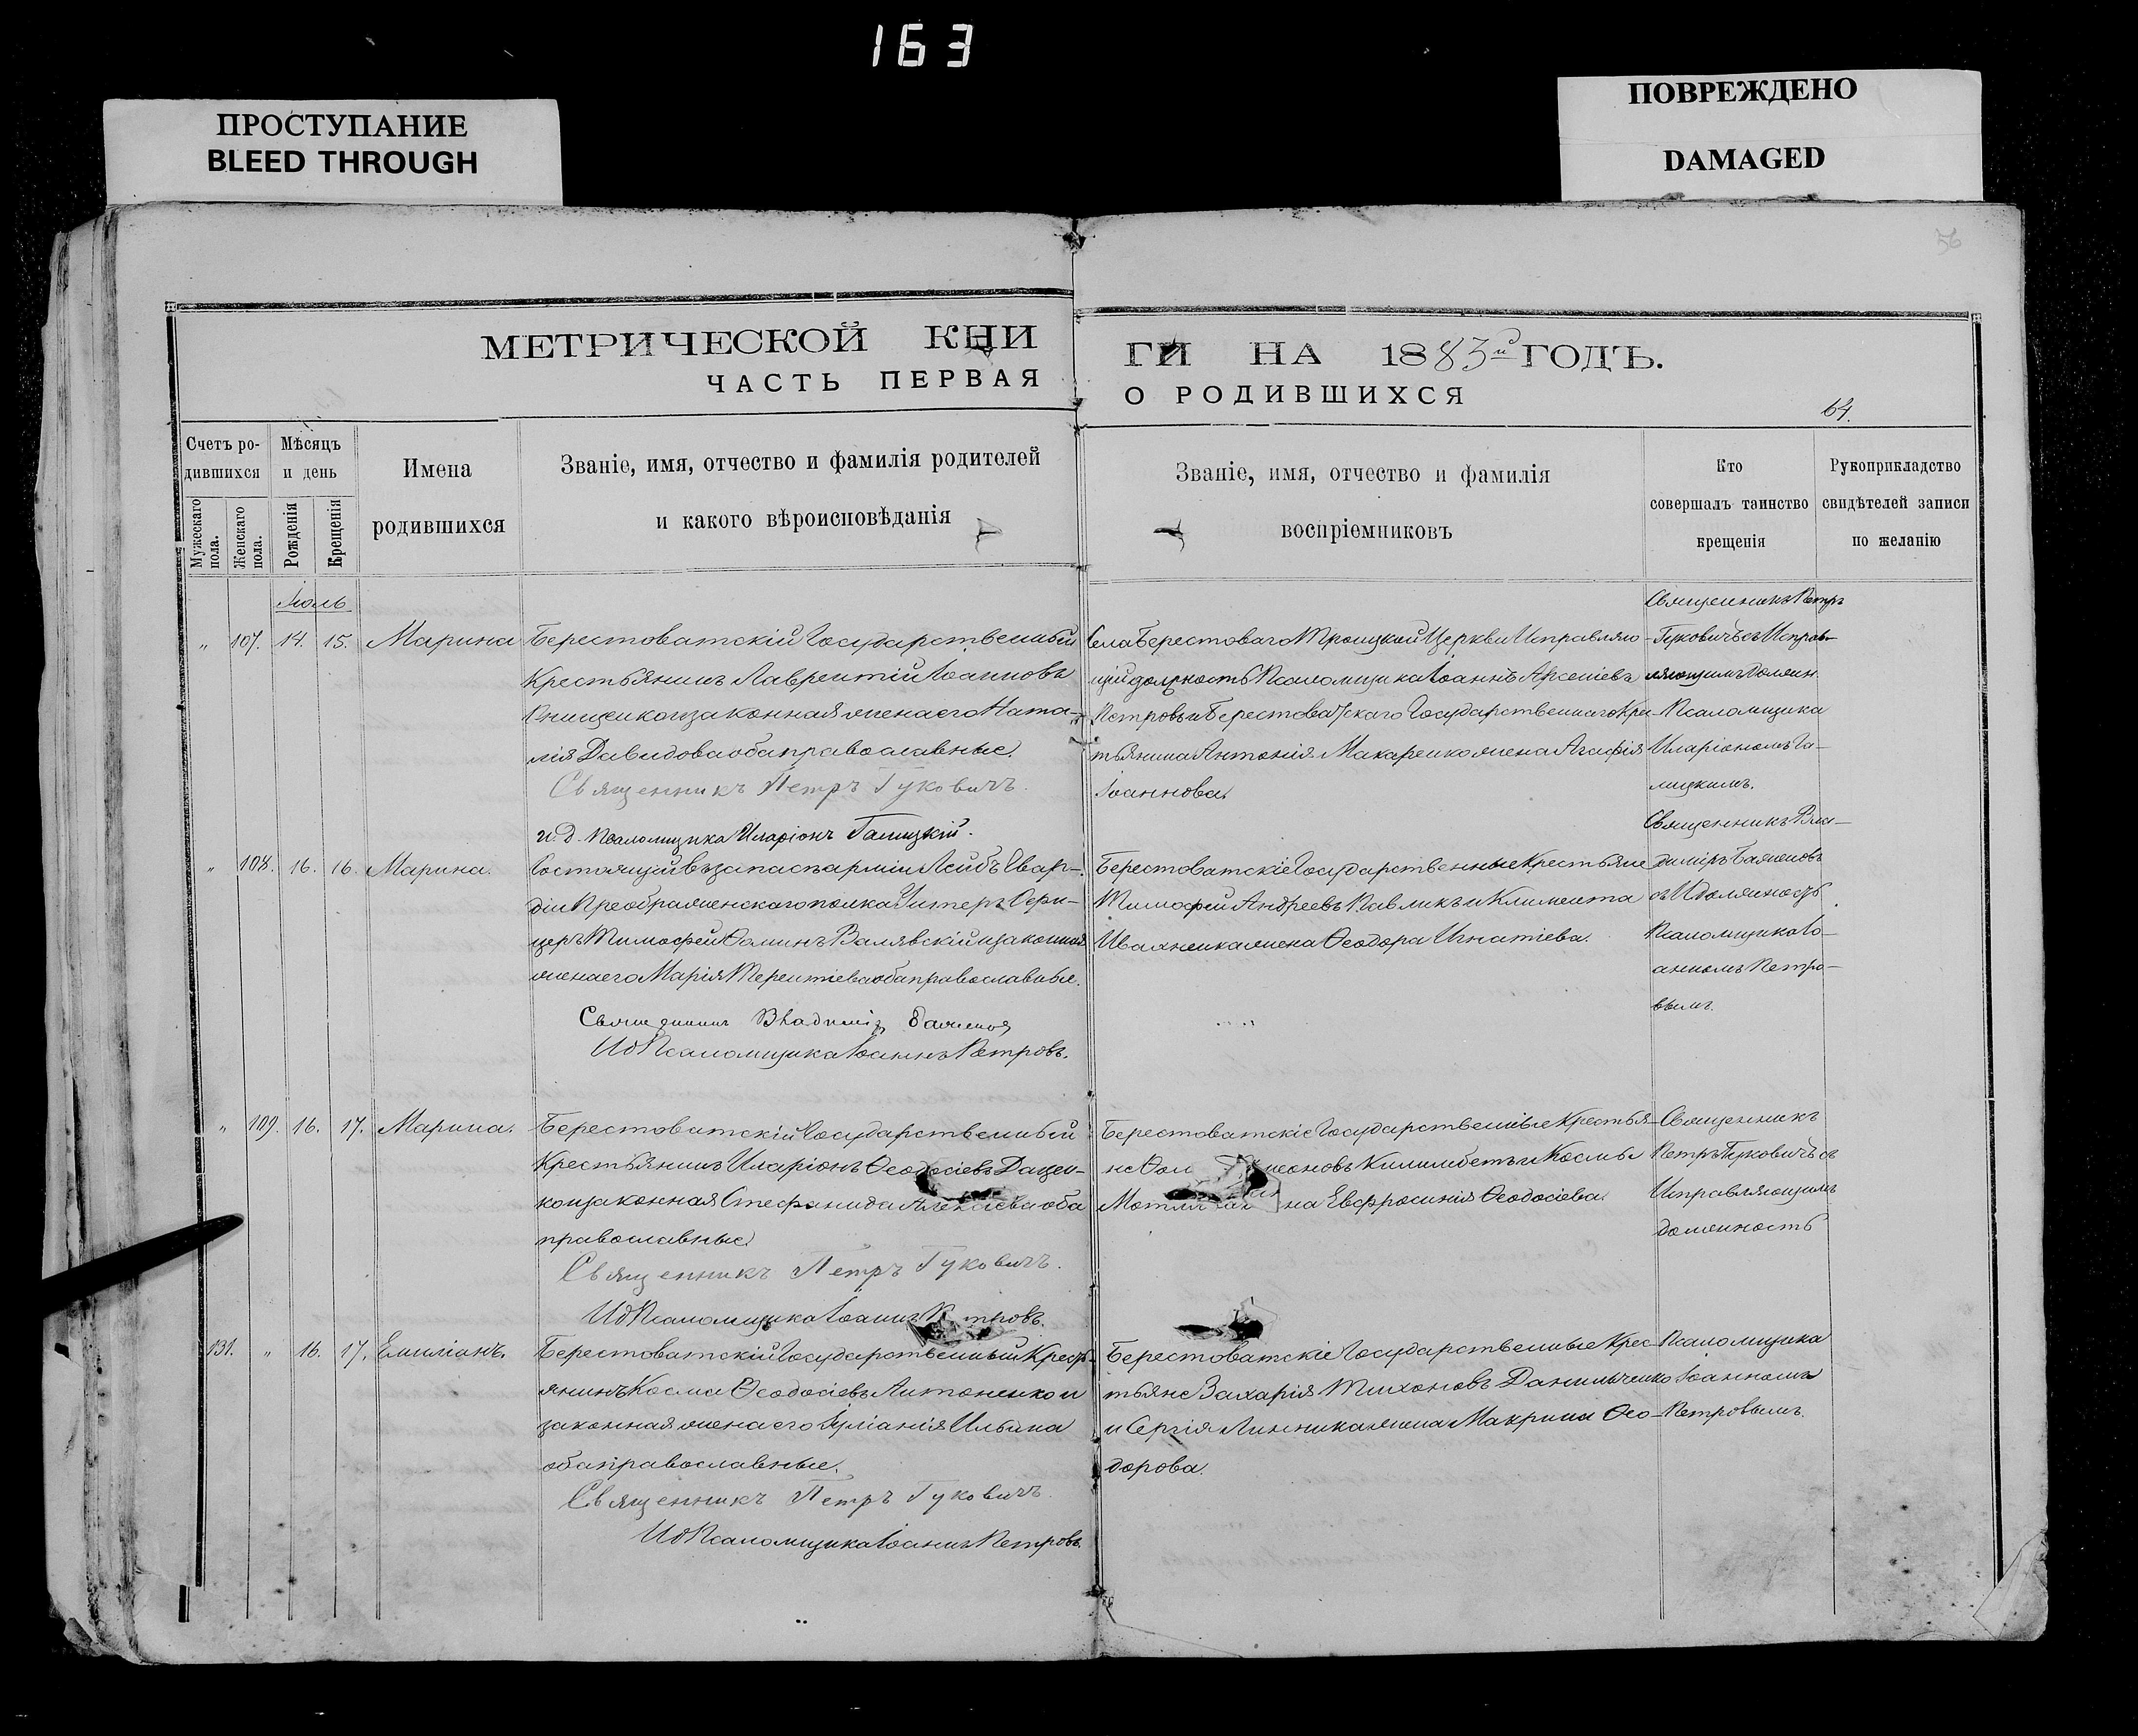 163
ПРОСТУПАНИЕ
BLEED THROUGH
ПОВРЕЖДЕНО
DAMAGED
56
МЕТРИЧЕСКОЙ КНИ
ГИ НА 1883й ГОДЪ.
ЧАСТЬ ПЕРВАЯ
О РОДИВШИХСЯ
64.
Счетъ ро-
дившихся
Мужескаго
пола.
Женскаго
пола.
Мѣсяцъ
и день
Рожденія
Крещенія
Имена
родившихся
Званіе, имя, отчество и фамилія родителей
и какого вѣроисповѣданія
Званіе, имя, отчество и фамилія
воспріемниковъ
Кто
совершалъ таинство
крещенія
Рукоприкладство
свидѣтелей записи
по желанію
Іюль
„ 107. 14. 15. Марина
Берестоватскій Государственный
Крестьянинъ Лаврентій Іоанновъ
и законная жена его Ната-
лія Давидова оба православные.
Священникъ Петръ Гуковичъ.
и. д. Псаломщика Иларіонъ Галицкій.
Села Берестоваго Троицкой Церкви Исправляю-
щій должность Псаломщика Іоаннъ Арсеніевъ
Петровъ и Берестоватскаго Государственнаго Крес-
тьянина Антонія Макаренко жена Агафія
Іоаннова.
Священникъ Петръ
Гуковичъ съ Исправ-
ляющимъ должн.
Псаломщика
Иларіономъ Га-
лицкимъ.
„ 108. 16. 16. Марина.
Состоящій въ запасѣ арміи Лейбъ Гвар-
діи Преображенскаго полка Унтеръ Офи-
церъ Тимофей Ѳоминъ Валявскій и законная
жена его Марія Терентіева оба православные.
Священникъ Владиміръ Баженовъ
Ид Псаломщика Іоаннъ Петровъ.
Берестоватскіе Государственные Крестьяне
Тимофей Андреевъ Павликъ и Климента
Иважненка жена Ѳеодора Игнатіева.
Священникъ Вла-
диміръ Баженовъ
съ И должность
Псаломщика Іо-
анномъ Петро-
вымъ.
„ 109. 16. 17. Марина.
Берестоватскій Государственный
Крестьянинъ Иларіонъ Ѳеодосіевъ Дацен-
ко и законная Стефанида Алексіева оба
православные.
Священникъ Петръ Гуковичъ.
Ид Псаломщика Іоаннъ Петровъ.
Берестоватскіе Государственные Крестья-
не Ѳом Килимбетъ и Космы
на Евфросинія Ѳеодосіева.
Священникъ
Петръ Гуковичъ съ
Исправляющимъ
должность
131. „ 16. 17. Емиліанъ.
Берестоватскій Государственный Кресть-
янинъ Косма Ѳеодосіевъ Антоненко и
законная жена его Іуліанія Ильина
оба православные.
Священникъ Петръ Гуковичъ.
Ид Псаломщика Іоаннъ Петровъ.
Берестоватскіе Государственные Крес-
тьяне Захарія Тихоновъ Данильченко
и Сергія Линника жена Макрина Ѳео-
дорова.
Псаломщика
Іоанномъ
Петровымъ.